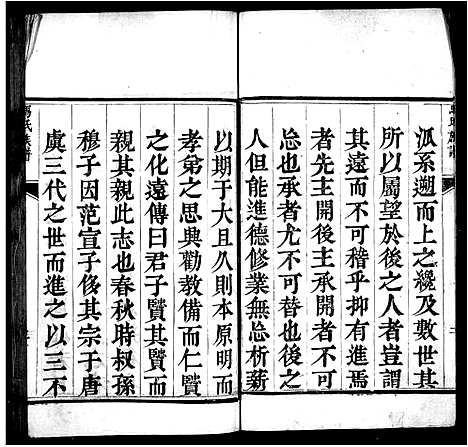 派系遡而上之纔及數世其
所以屬望於後之人者豈謂
其遠而不可稽乎抑有進焉
者先主開後主承開者不可
忘也承者尤不可替也後之
人但能進德修業無忘析薪
以期于大且久則本原明而
孝弟之思興勸教備而仁賢
之化遠傳曰君子賢其賢而
親其親此志也春秋時叔孫
穆子因范宣子侈其宗于唐
虞三代之世而進之以三不
氏族譜